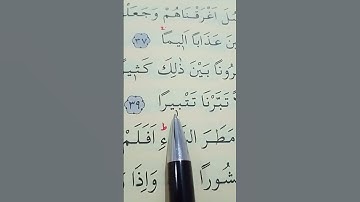 سُلَ اَغْرَقْنَاهُمْ وَجَعَلْ
ينَ عَذَابًا اَلِيمًاۚ ﴿٣٧﴾
رُونًا بَيْنَ ذٰلِكَ كَثِي
تَبَّرْنَا تَتْبِيرًا ﴿٣٩﴾
مَطَرَ اَفَلَمْ
شُورًا وَاِذَا